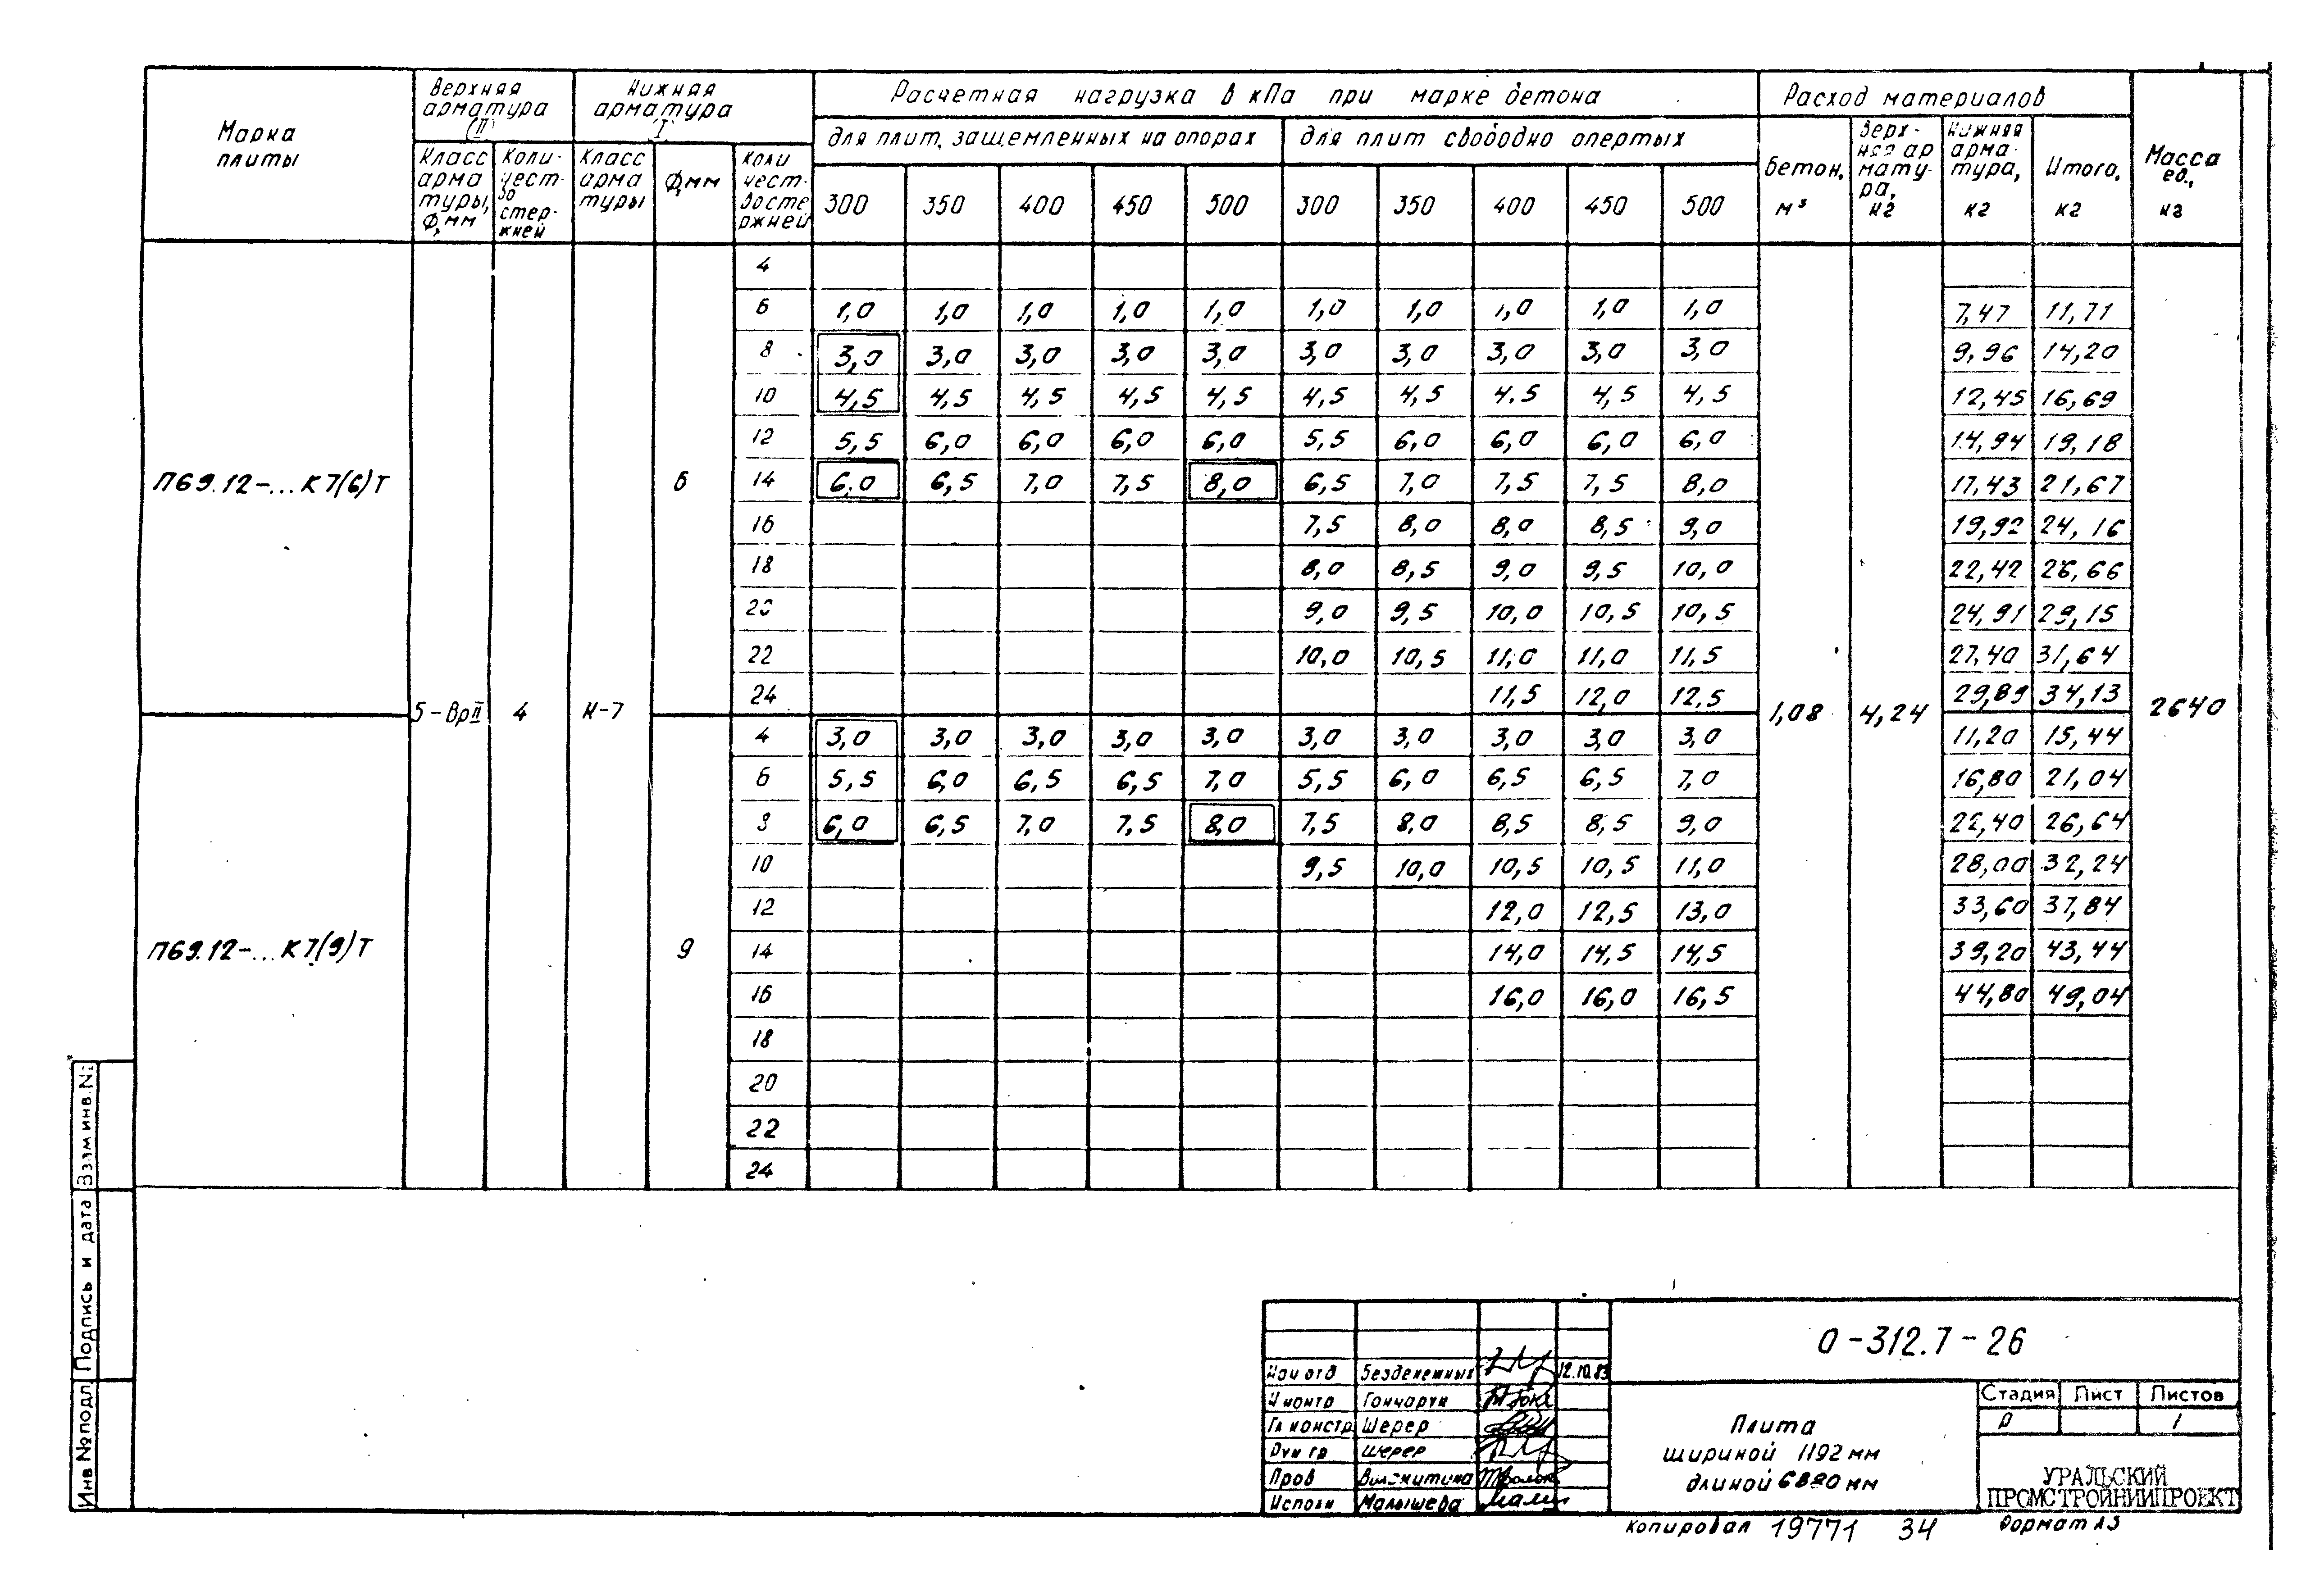 Марка плиты
Верхняя арматура (II)
Класс арматуры, Ф, мм
Количество стержней
Нижняя арматура (I)
Класс арматуры
Ф, мм
Количество стержней
Расчетная нагрузка в кПа при марке бетона
для плит, защемленных на опорах
для плит свободно опертых
300 350 400 450 500 300 350 400 450 500
Расход материалов
бетон, м³
Верхняя арматура, кг
Нижняя арматура, кг
Итого, кг
Масса ед., кг
П69.12-...К7(6)Т
6
4
6 1,0 1,0 1,0 1,0 1,0 1,0 1,0 1,0 1,0 1,0 7,47 11,71
8 3,0 3,0 3,0 3,0 3,0 3,0 3,0 3,0 3,0 3,0 9,96 14,20
10 4,5 4,5 4,5 4,5 4,5 4,5 4,5 4.5 4,5 4,5 12,45 16,69
12 5,5 6,0 6,0 6,0 6,0 5,5 6,0 6,0 6,0 6,0 14,94 19,18
14 6,0 6,5 7,0 7,5 8,0 6,5 7,0 7,5 7,5 8,0 17,43 21,67
16 7,5 8,0 8,0 8,5 9,0 19,92 24,16
18 8,0 8,5 9,0 9,5 10,0 22,42 26,66
20 9,0 9,5 10,0 10,5 10,5 24,91 29,15
22 10,0 10,5 11,0 11,0 11,5 27,40 31,64
24 11,5 12,0 12,5 29,89 34,13
5-ВрII 4 К-7 1,08 4,24 2640
П69.12-...К7(9)Т
9
4 3,0 3,0 3,0 3,0 3,0 3,0 3,0 3,0 3,0 3,0 11,20 15,44
6 5,5 6,0 6,5 6,5 7,0 5,5 6,0 6,5 6,5 7,0 16,80 21,04
8 6,0 6,5 7,0 7,5 8,0 7,5 8,0 8,5 8,5 9,0 22,40 26,64
10 9,5 10,0 10,5 10,5 11,0 28,00 32,24
12 12,0 12,5 13,0 33,60 37,84
14 14,0 14,5 14,5 39,20 43,44
16 16,0 16,0 16,5 44,80 49,04
18
20
22
24
Взам инв. №
Подпись и дата
Инв № подл
0-312.7-26
Нач отд Безденежных 12.10.83
Н контр Гончарун
Гл констр Шерер
Рук гр Шерер
Пров
Исполн Малышева
Плита
шириной 1192 мм
длиной 6880 мм
Стадия Лист Листов
Р 1
УРАЛЬСКИЙ
ПРОМСТРОЙНИИПРОЕКТ
Копировал 19771 34 Формат А3